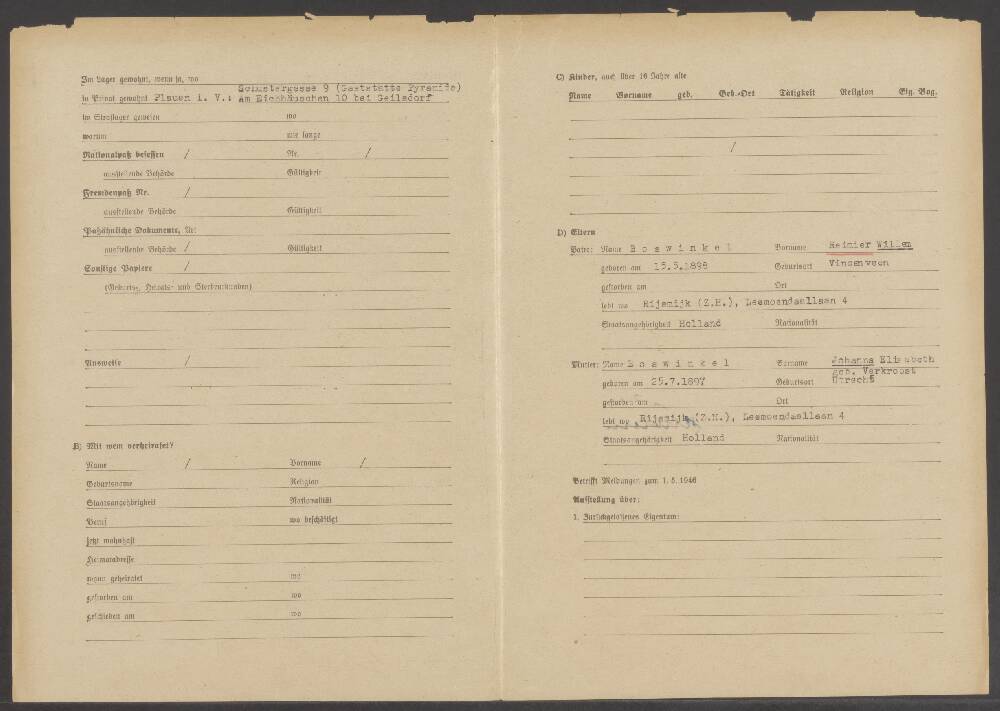 Im Lager gewohnt, wenn ja, wo
Schustergasse 9 (Gaststätte Pyramide)
in Privat gewohnt Plauen i. V.: Am Eichhäuschen 10 bei Geilsdorf
im Straflager gewesen wo
warum wie lange
Nationalpaß besessen / Nr. /
ausstellende Behörde Gültigkeit
Fremdenpaß Nr. /
ausstellende Behörde Gültigkeit
Paßähnliche Dokumente, Art
ausstellende Behörde / Gültigkeit
Sonstige Papiere /
(Geburts-, Heirats- und Sterbeurkunden)
Ausweise /
B) Mit wem verheiratet?
Name / Vorname /
Geburtsname Religion
Staatsangehörigkeit Nationalität
Beruf wo beschäftigt
jetzt wohnhaft
Heimatadresse
wann geheiratet wo
gestorben am wo
geschieden am wo
C) Kinder, auch über 16 Jahre alte
Name Vorname geb. Geb.-Ort Tätigkeit Religion Eig. Bog.
/
D) Eltern
Vater: Name Boswinkel Vorname Reinier Willem
geboren am 15.5.1898 Geburtsort Vinsenveen
gestorben am Ort
lebt wo Rijsmijk (Z.H.), Leemoendaallaan 4
Staatsangehörigkeit Holland Nationalität
Mutter: Name Boswinkel Vorname Johanna Elisabeth
geb. Verkroost
geboren am 25.7.1897 Geburtsort Utrecht
gestorben am Ort
lebt wo Rijsmijk (Z.H.), Leemoendaallaan 4
Staatsangehörigkeit Holland Nationalität
Betrifft Meldungen zum 1. 5. 1946
Aufstellung über:
1. Zurückgelassenes Eigentum: